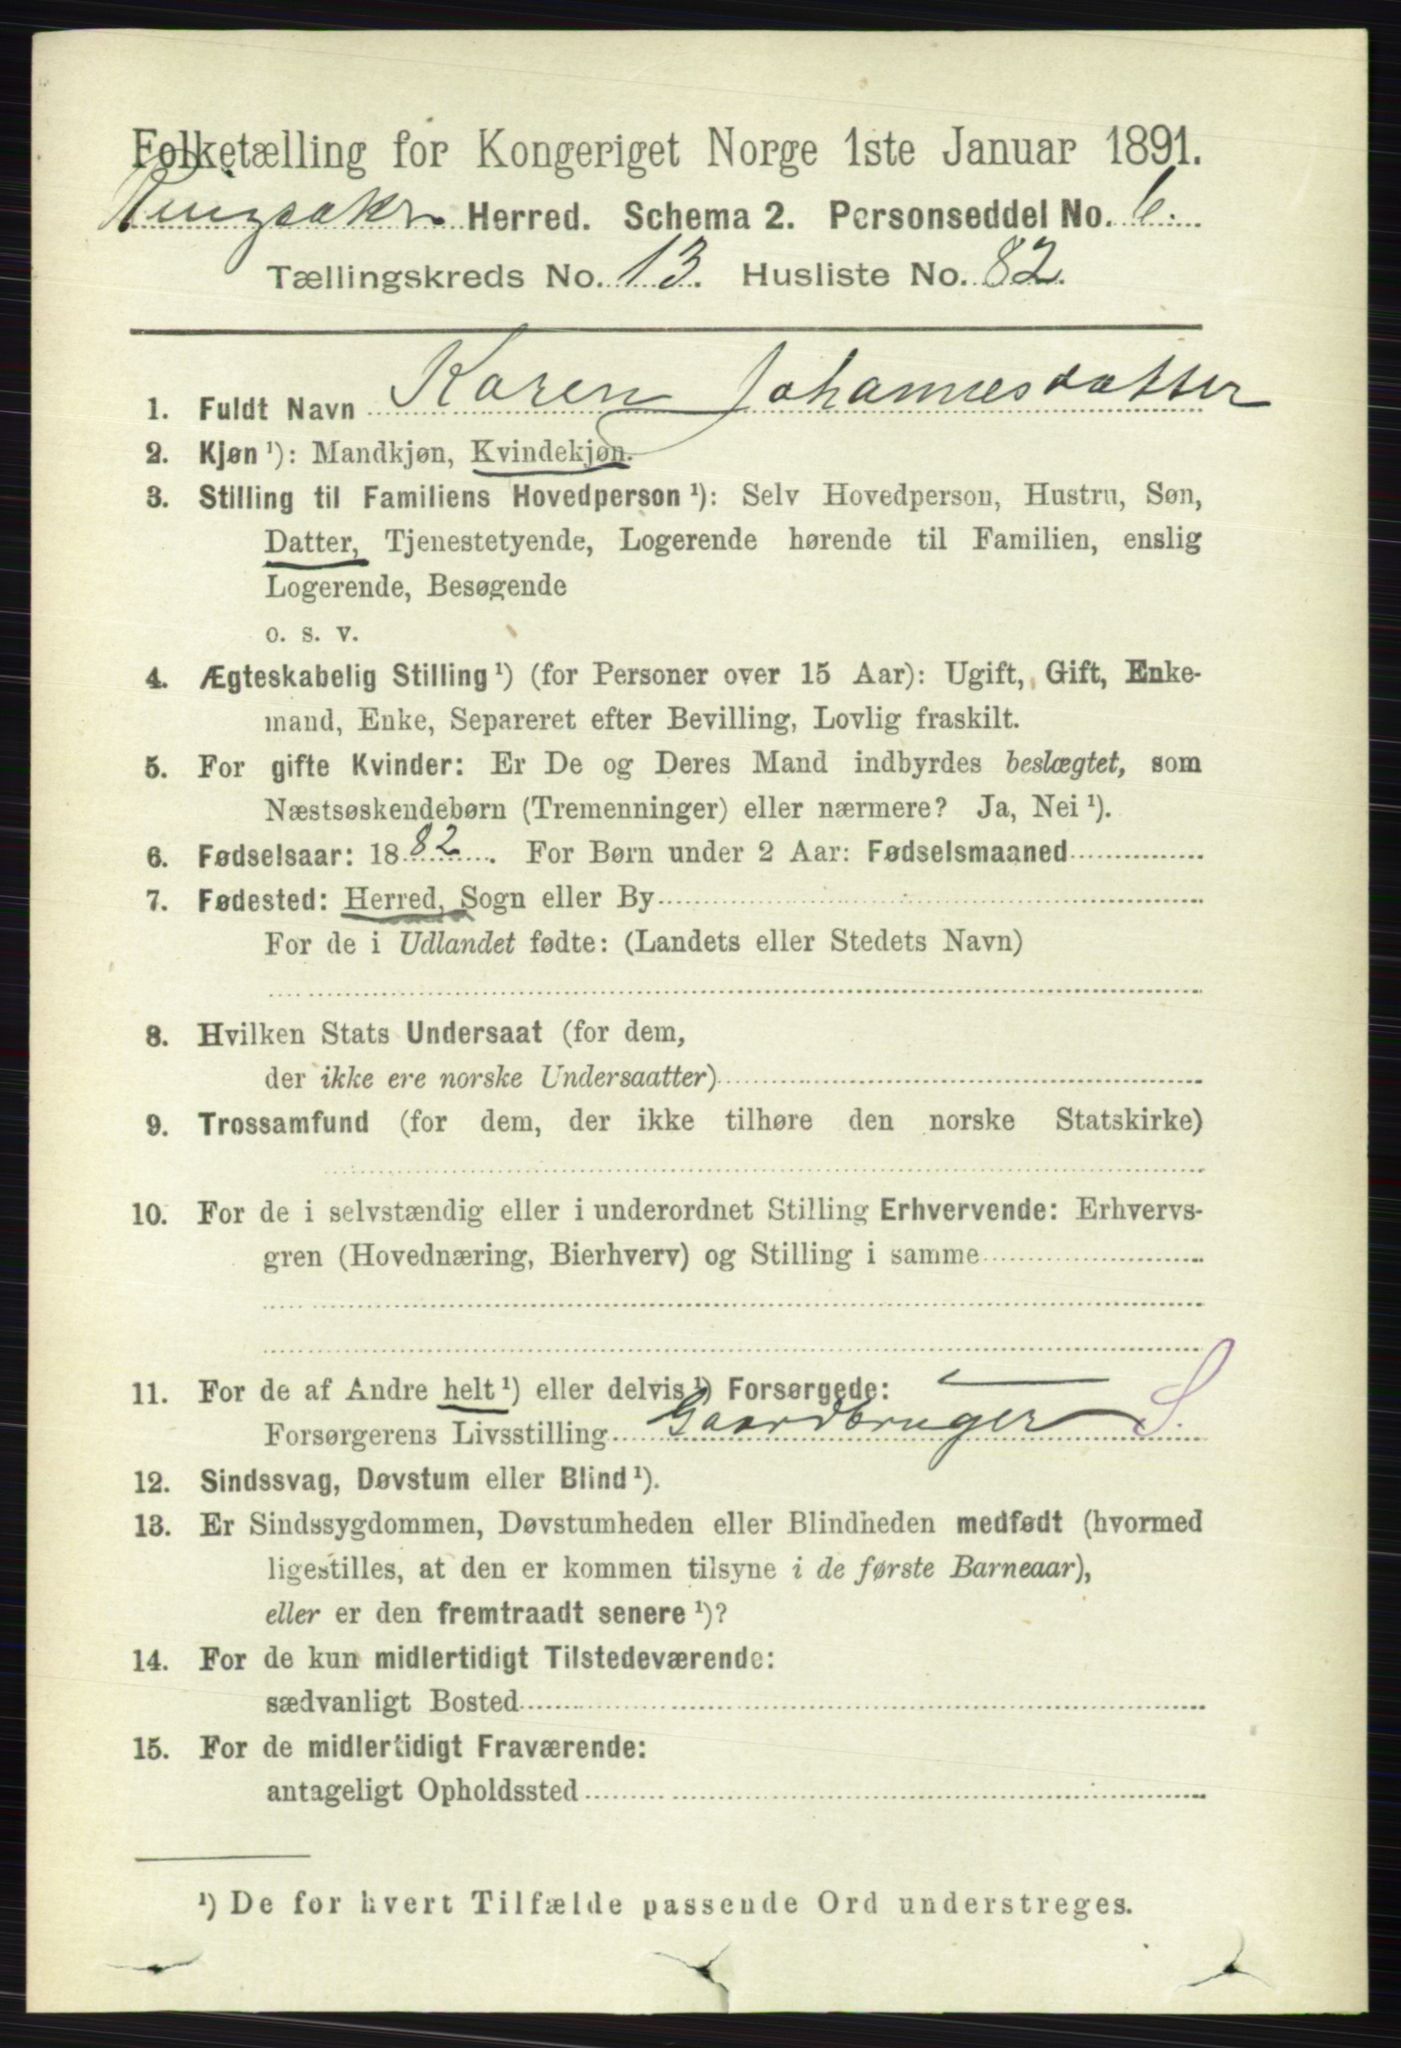 Folketælling for Kongeriget Norge 1ste Januar 1891.
Ringsaker Herred. Schema 2. Personseddel No. 6.
Tællingskreds No. 13. Husliste No. 82.
1. Fuldt Navn Karen Johannesdatter
2. Kjøn ¹): Mandkjøn, Kvindekjøn.
3. Stilling til Familiens Hovedperson ¹): Selv Hovedperson, Hustru, Søn,
Datter, Tjenestetyende, Logerende hørende til Familien, enslig
Logerende, Besøgende
o. s. v.
4. Ægteskabelig Stilling ¹) (for Personer over 15 Aar): Ugift, Gift, Enke-
mand, Enke, Separeret efter Bevilling, Lovlig fraskilt.
5. For gifte Kvinder: Er De og Deres Mand indbyrdes beslægtet, som
Næstsøskendebørn (Tremenninger) eller nærmere? Ja, Nei ¹).
6. Fødselsaar: 1882. For Børn under 2 Aar: Fødselsmaaned
7. Fødested: Herred, Sogn eller By
For de i Udlandet fødte: (Landets eller Stedets Navn)
8. Hvilken Stats Undersaat (for dem,
der ikke ere norske Undersaatter)
9. Trossamfund (for dem, der ikke tilhøre den norske Statskirke)
10. For de i selvstændig eller i underordnet Stilling Erhvervende: Erhvervs-
gren (Hovednæring, Bierhverv) og Stilling i samme
11. For de af Andre helt ¹) eller delvis ¹) Forsørgede:
Forsørgerens Livsstilling Gaardbruger S.
12. Sindssvag, Døvstum eller Blind ¹).
13. Er Sindssygdommen, Døvstumheden eller Blindheden medfødt (hvormed
ligestilles, at den er kommen tilsyne i de første Barneaar),
eller er den fremtraadt senere ¹)?
14. For de kun midlertidigt Tilstedeværende:
sædvanligt Bosted
15. For de midlertidigt Fraværende:
antageligt Opholdssted
¹) De for hvert Tilfælde passende Ord understreges.